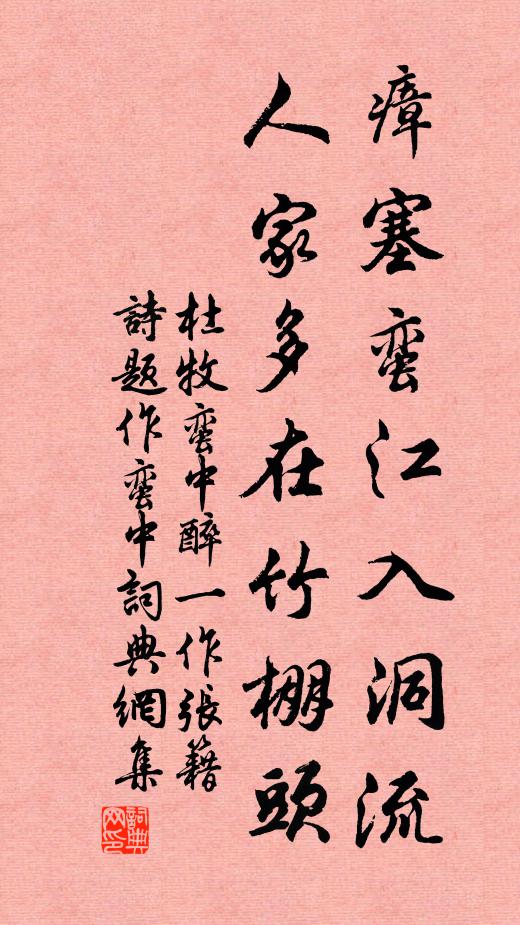 瘴塞蛮江入洞流
人家多在竹棚頭
杜牧蛮中醉一作張籍
詩題作蛮中詞典網集
詞典网印